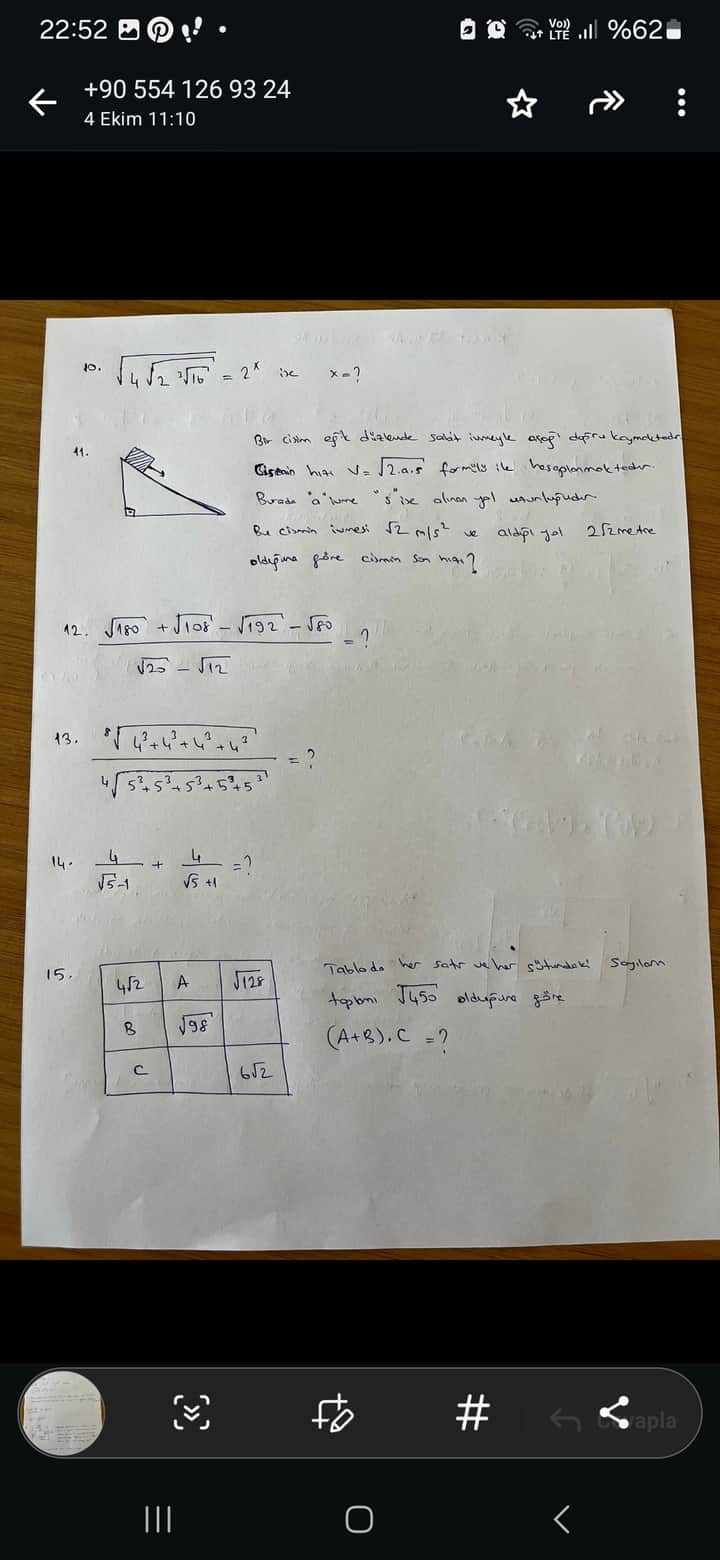 22:52 Vo)) LTE %62
+90 554 126 93 24
4 Ekim 11:10
10. √(4√(2 ∛16)) = 2^x ise x=?
11. Bir cisim eğik düzlemde sabit ivmeyle aşağı doğru kaymaktadır.
Cismin hızı V= √(2.a.s) formülü ile hesaplanmaktadır.
Burada "a" ivme "s" ise alınan yol uzunluğudur
Bu cismin ivmesi √2 m/s² ve aldığı yol 2√2 metre
olduğuna göre cismin son hızı?
12. (√180 + √108 - √192 - √80) / (√20 - √12) = ?
13. ⁸√(4³+4³+4³+4³) / ⁴√(5³+5³+5³+5³+5³) = ?
14. 4/(√5-1) + 4/(√5+1) =?
15. Tabloda her satır ve her sütundaki sayıların
toplamı √450 olduğuna göre
(A+B).C =?
4√2 A √128
B √98
C 6√2
Cevapla